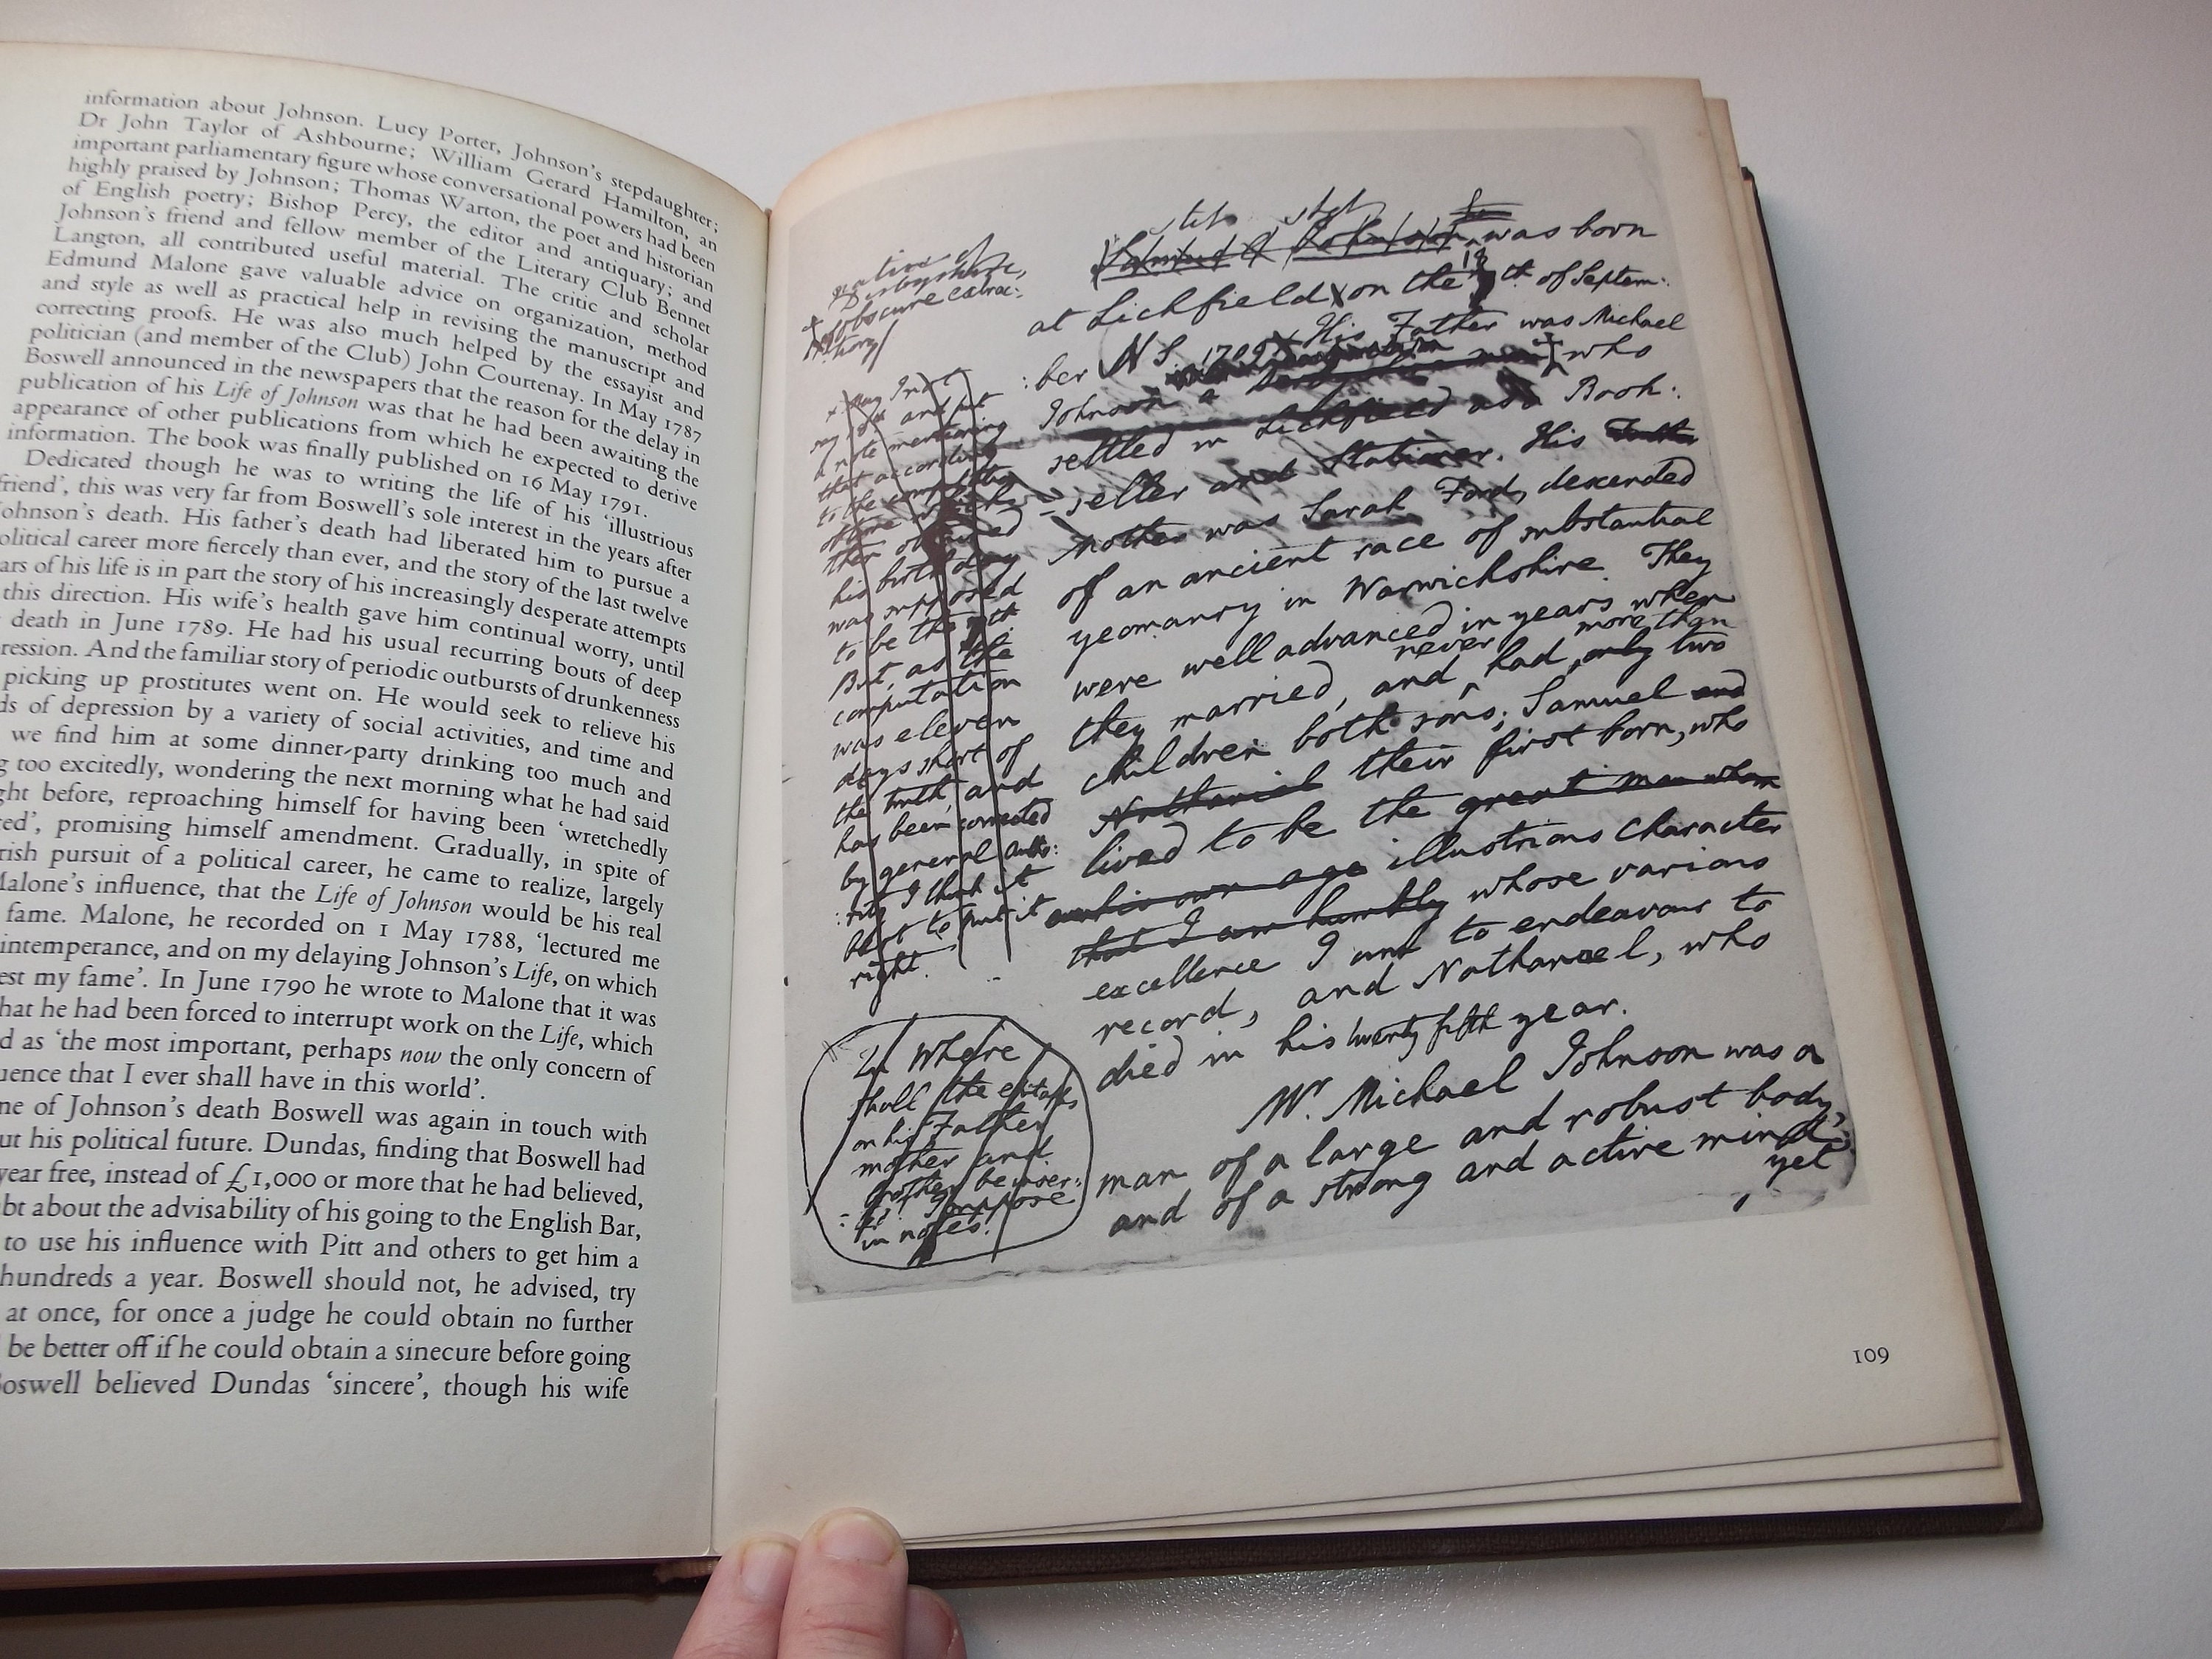 information about Johnson. Lucy Porter, Johnson's stepdaughter;
Dr John Taylor of Ashbourne; William Gerard Hamilton, an
important parliamentary figure whose conversational powers had been
highly praised by Johnson; Thomas Warton, the poet and historian
of English poetry; Bishop Percy, the editor and antiquary; and
Johnson's friend and fellow member of the Literary Club Bennet
Langton, all contributed useful material. The critic and scholar
Edmund Malone gave valuable advice on organization, method
and style as well as practical help in revising the manuscript and
correcting proofs. He was also much helped by the essayist and
politician (and member of the Club) John Courtenay. In May 1787
Boswell announced in the newspapers that the reason for the delay in
publication of his Life of Johnson was that he had been awaiting the
appearance of other publications from which he expected to derive
information. The book was finally published on 16 May 1791.
Dedicated though he was to writing the life of his 'illustrious
friend', this was very far from Boswell's sole interest in the years after
Johnson's death. His father's death had liberated him to pursue a
political career more fiercely than ever, and the story of the last twelve
ars of his life is in part the story of his increasingly desperate attempts
this direction. His wife's health gave him continual worry, until
death in June 1789. He had his usual recurring bouts of deep
ression. And the familiar story of periodic outbursts of drunkenness
picking up prostitutes went on. He would seek to relieve his
ds of depression by a variety of social activities, and time and
we find him at some dinner-party drinking too much and
g too excitedly, wondering the next morning what he had said
ght before, reproaching himself for having been 'wretchedly
ted', promising himself amendment. Gradually, in spite of
rish pursuit of a political career, he came to realize, largely
Malone's influence, that the Life of Johnson would be his real
fame. Malone, he recorded on 1 May 1788, 'lectured me
intemperance, and on my delaying Johnson's Life, on which
est my fame'. In June 1790 he wrote to Malone that it was
hat he had been forced to interrupt work on the Life, which
d as 'the most important, perhaps now the only concern of
uence that I ever shall have in this world'.
ne of Johnson's death Boswell was again in touch with
ut his political future. Dundas, finding that Boswell had
year free, instead of £1,000 or more that he had believed,
bt about the advisability of his going to the English Bar,
to use his influence with Pitt and others to get him a
hundreds a year. Boswell should not, he advised, try
at once, for once a judge he could obtain no further
be better off if he could obtain a sinecure before going
Boswell believed Dundas 'sincere', though his wife
a native of
Derbyshire,
of obscure extrac:
:tion
may I not
say 18 and put
a note mentioning
that according
to the computation
of time
then
his birth day
was supposed
to be the 7th
But, as the
computation
was eleven
days short of
the truth, and
has been corrected
by general autho:
:rity I think it
best to put it
right.
Qu Where
shall the epitaph
on his Father
mother and
brother be inser:
:ted I suppose
in notes.
stet stet
Samuel Johnson was born
at Lichfield on the 18th of Septem:
:ber N S 1709 His Father was Michael
Johnson a who
settled in Lichfield as a Book:
=seller and Stationer. His Father
Mother was Sarah Ford, descended
of an ancient race of substantial
yeomanry in Warwickshire. They
were well advanced in years when
never more than
they married, and had only two
children both sons; Samuel and
Nathaniel their first born, who
lived to be the great man whom
illustrious character
that I am humbly whose various
excellence I am to endeavour to
record, and Nathanael, who
died in his twenty fifth year.
Mr. Michael Johnson was a
man of a large and robust body,
and of a strong and active mind
yet
109